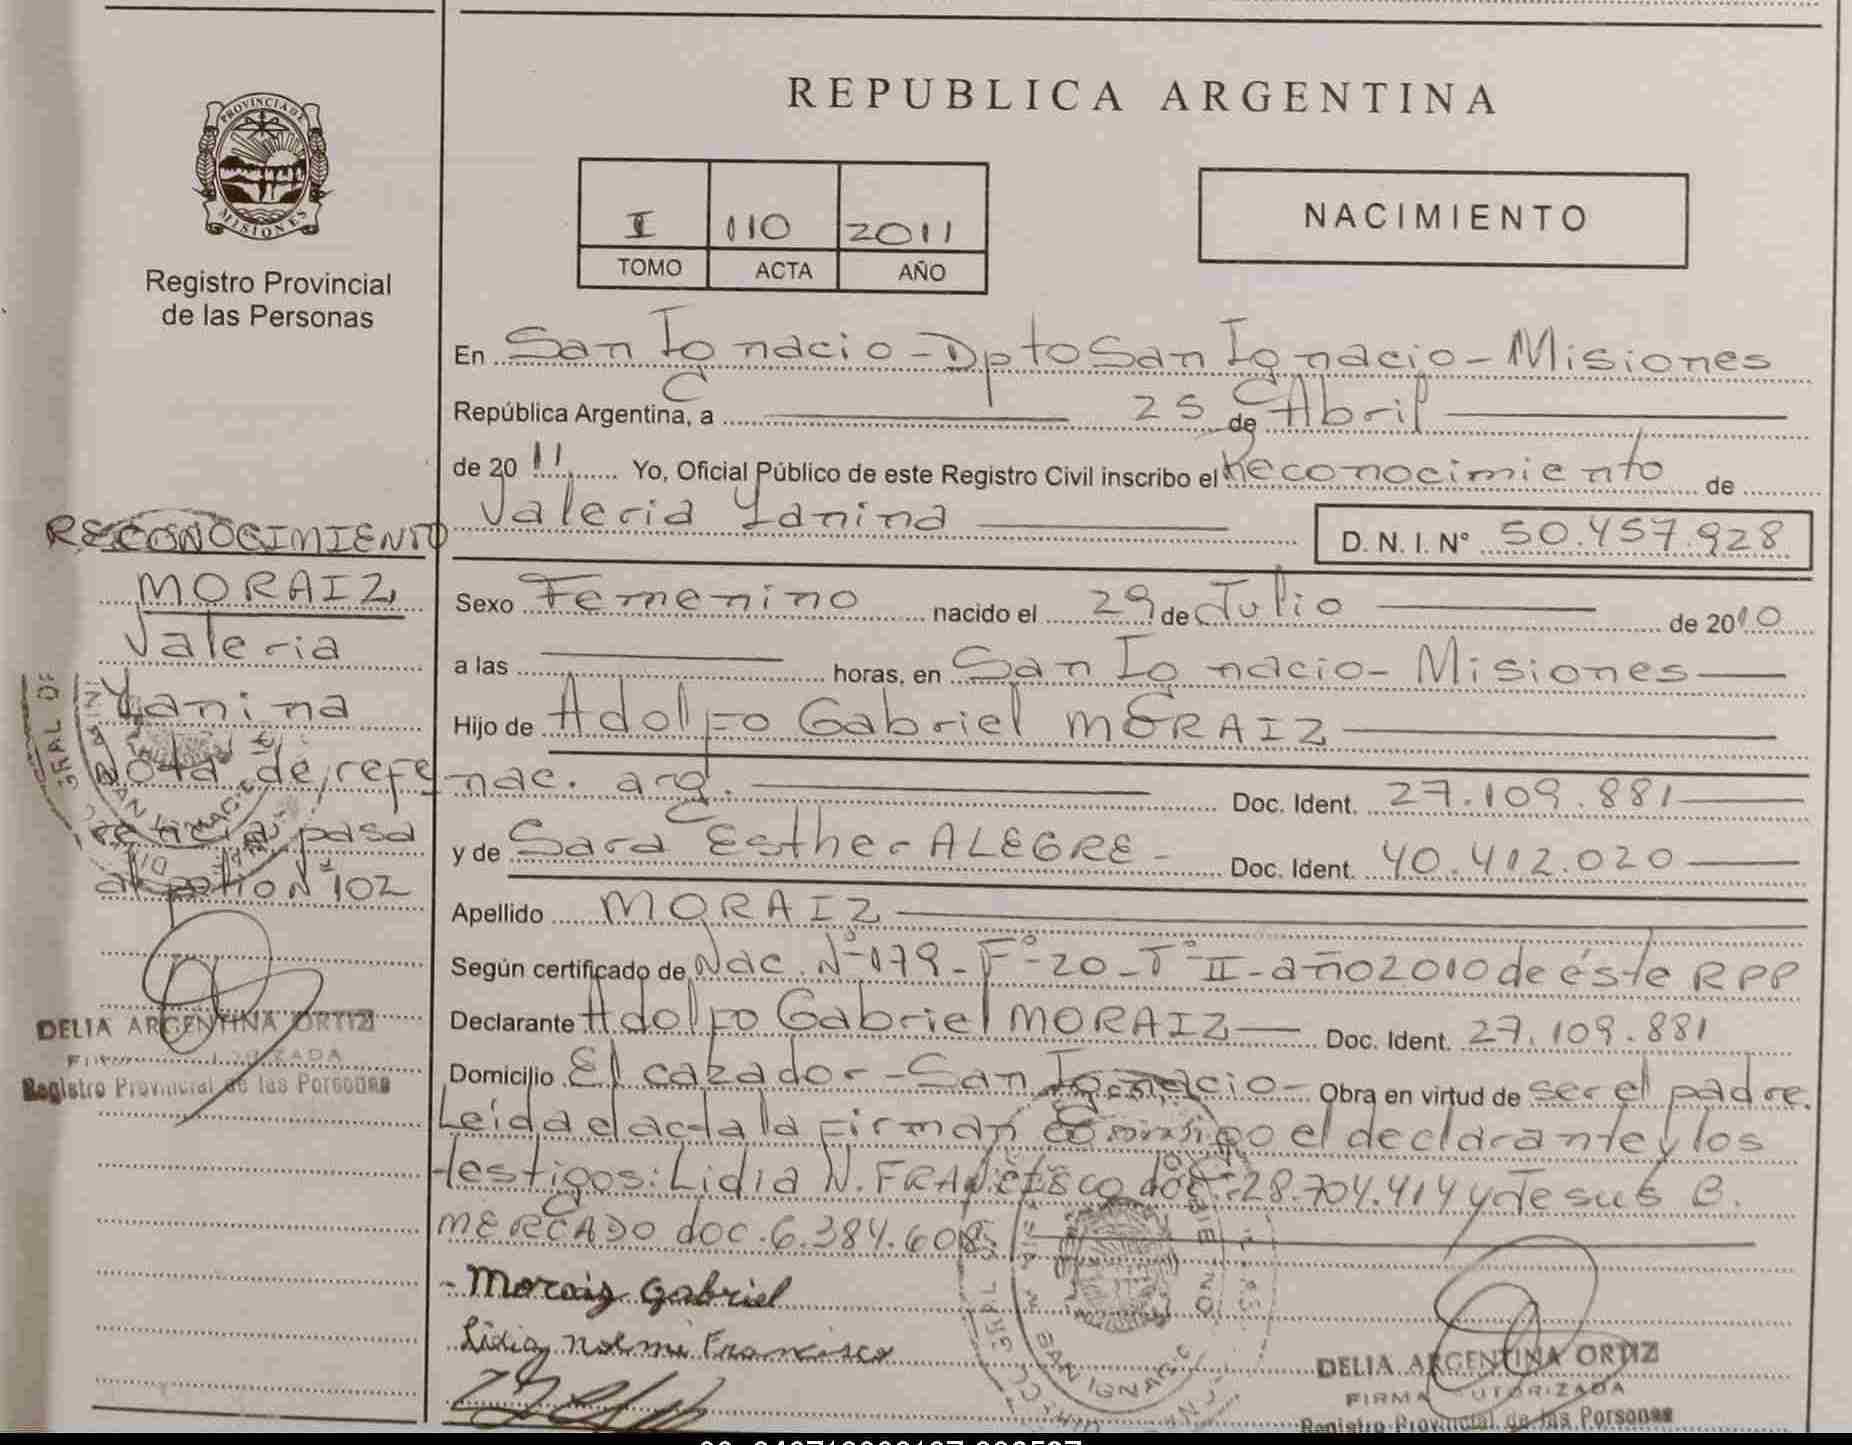 PROVINCIA DE
MISIONES
Registro Provincial
de las Personas
REPUBLICA ARGENTINA
I 110 2011
TOMO ACTA AÑO
NACIMIENTO
En San Ignacio - Dpto San Ignacio - Misiones
República Argentina, a 25 de Abril
de 2011 Yo, Oficial Público de este Registro Civil inscribo el Reconocimiento de
Valeria Yanina
D. N. I. N° 50.457.928
Sexo Femenino nacido el 29 de Julio de 2010
a las horas, en San Ignacio - Misiones
Hijo de Adolfo Gabriel MORAIZ
nac. arg. Doc. Ident. 27.109.881
y de Sara Esther ALEGRE - Doc. Ident. 40.412.020
Apellido MORAIZ
Según certificado de Nac. N° 179 - F° 20 - T° II - año 2010 de éste RPP
Declarante Adolfo Gabriel MORAIZ Doc. Ident. 27.109.881
Domicilio El cazador - San Ignacio - Obra en virtud de ser el padre.
Leída el acta la firman conmigo el declarante y los
testigos: Lidia N. FRANCISCO doc. 28.704.414 y Jesus B.
MERCADO doc. 6.384.608
- Moraiz Gabriel
Lidia Noemi Francisco
SAN IGNACIO
DELIA ARGENTINA ORTIZ
FIRMA AUTORIZADA
Registro Provincial de las Personas
RECONOCIMIENTO
MORAIZ
Valeria
Yanina
Nota de refe
rencia pasa
al folio N° 102
DELIA ARGENTINA ORTIZ
FIRMA AUTORIZADA
Registro Provincial de las Personas